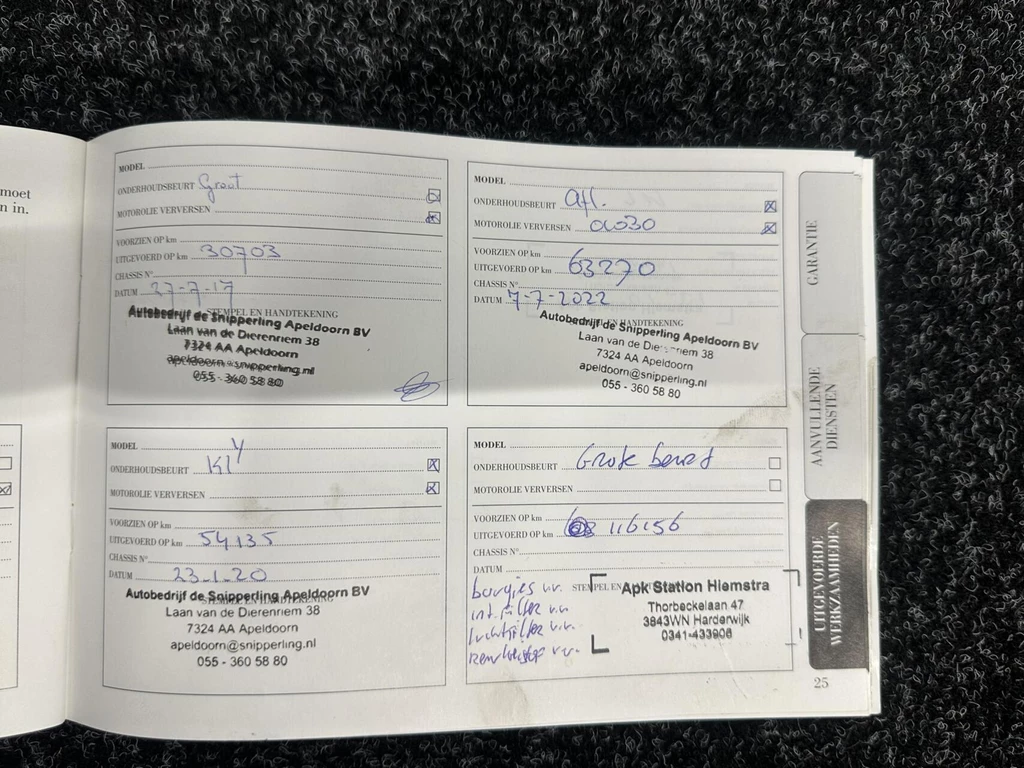 moet
n in.
MODEL
ONDERHOUDSBEURT Groot
MOTOROLIE VERVERSEN
VOORZIEN OP km
UITGEVOERD OP km 30703
CHASSIS N°
DATUM 27-7-17
STEMPEL EN HANDTEKENING
Autobedrijf de Snipperling Apeldoorn BV
Laan van de Dierenriem 38
7324 AA Apeldoorn
apeldoorn@snipperling.nl
055 - 360 58 80
MODEL
ONDERHOUDSBEURT Afl.
MOTOROLIE VERVERSEN 0W30
VOORZIEN OP km
UITGEVOERD OP km 63270
CHASSIS N°
DATUM 7-7-2022
STEMPEL EN HANDTEKENING
Autobedrijf de Snipperling Apeldoorn BV
Laan van de Dierenriem 38
7324 AA Apeldoorn
apeldoorn@snipperling.nl
055 - 360 58 80
MODEL
ONDERHOUDSBEURT Kl
MOTOROLIE VERVERSEN
VOORZIEN OP km
UITGEVOERD OP km 54135
CHASSIS N°
DATUM 23-1-20
STEMPEL EN HANDTEKENING
Autobedrijf de Snipperling Apeldoorn BV
Laan van de Dierenriem 38
7324 AA Apeldoorn
apeldoorn@snipperling.nl
055 - 360 58 80
MODEL
ONDERHOUDSBEURT Grote beurt
MOTOROLIE VERVERSEN
VOORZIEN OP km
UITGEVOERD OP km 116156
CHASSIS N°
DATUM
STEMPEL EN
bougies v.v.
int. filter v.v.
luchtfilter v.v.
remvloeistof v.v.
Apk Station Hiemstra
Thorbeckelaan 47
3843WN Harderwijk
0341-433906
GARANTIE
AANVULLENDE
DIENSTEN
UITGEVOERDE
WERKZAAMHEDEN
25